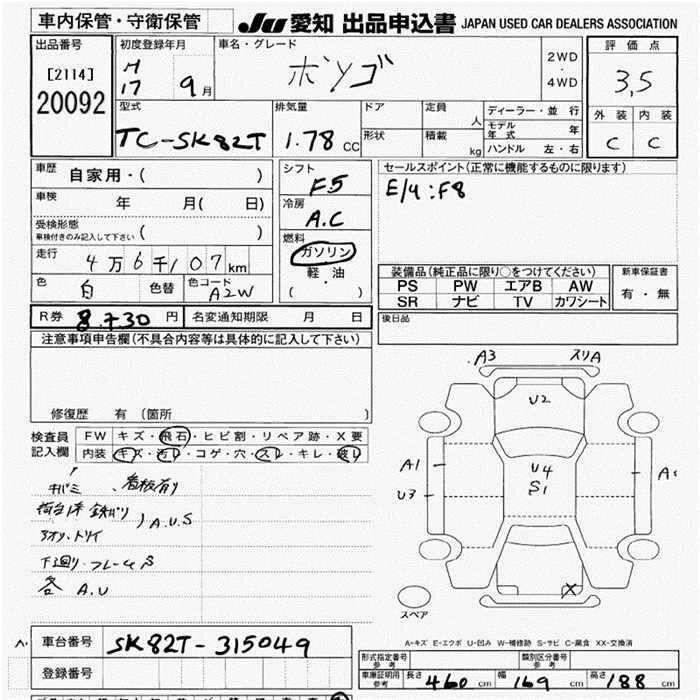 車内保管・守衛保管
JU 愛知 出品申込書 JAPAN USED CAR DEALERS ASSOCIATION
出品番号
[2114]
20092
初度登録年月
H
17 9月
車名・グレード
ボンゴ
2WD
・
4WD
評価点
3,5
外装 内装
C C
型式
TC-SK82T
排気量
1.78 CC
ドア
形状
定員
人
積載
kg
ディーラー・並行
モデル年式 年
ハンドル 左・右
車歴
自家用・( )
車検
年 月( 日)
受検形態
車検付きのみ記入して下さい ( )
走行
4万6千107km
色
白 色替
色コード
A2W
シフト
F5
冷房
A.C
燃料
ガソリン
軽・油
( )
セールスポイント(正常に機能するものに限ります)
E/4:F8
装備品(純正品に限り○をつけてください)
PS PW エアB AW
SR ナビ TV カワシート
新車保証書
有・無
R券 8,730 円 名変通知期限 月 日
後日品
注意事項申告欄(不具合内容等は具体的に記入して下さい)
修復歴 有(箇所 )
検査員
記入欄
FW キズ・飛石・ヒビ割・リペア跡・X要
内装 キズ・汚レ・コゲ・穴・スレ・キレ・破レ
キバミ、看板有り
荷台床 鉄板バリ
アオリ、トリイ
) A.U.S
下廻り・フレームS
各 A.U
A3 スリA
U2
A1
U3
U4
S1
X
スペア
A-キズ E-エクボ U-凹み W-補修跡 S-サビ C-腐食 XX-交換済
車台番号 SK82T-315049
登録番号
形式指定番号
参考
類別区分番号
参考
車庫証明用
参考
長さ 460 cm 幅 169 cm 高さ 188 cm